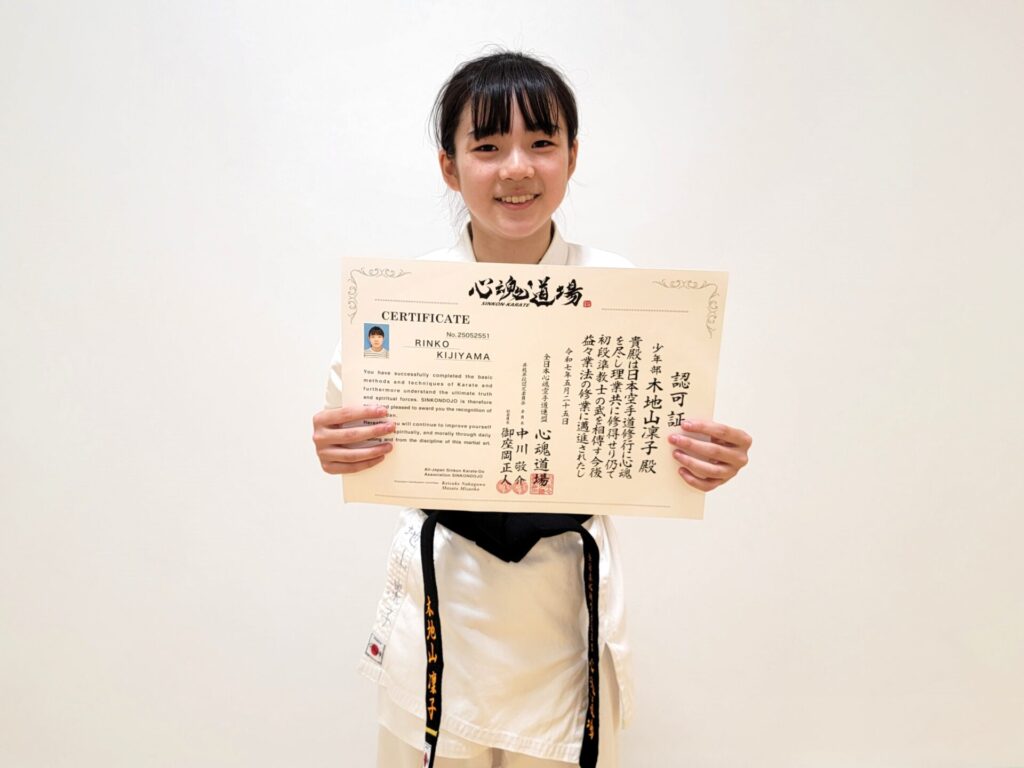 心魂道場
SINKON-KARATE
CERTIFICATE
No.25052551
RINKO
KIJIYAMA
You have successfully completed the basic
methods and techniques of Karate and
furthermore understand the ultimate truth
and spiritual forces. SINKONDOJO is therefore
pleased to award you the recognition of
you will continue to improve yourself
spiritually, and morally through daily
and from the discipline of this martial art.
All-Japan Sinkon Karate-Do
Association SINKONDOJO
Keisuke Nakagawa
Masato Misaoka
認可証
少年部 木地山凛子 殿
貴殿は日本空手道修行に心魂
を尽し理業共に修得せり仍て
初段準教士の武を相傳す今後
益々業法の修業に邁進されたし
令和七年五月二十五日
全日本心魂空手道連盟 心魂道場
中川敬介
御座岡正人
地山凛子
木地山凛子